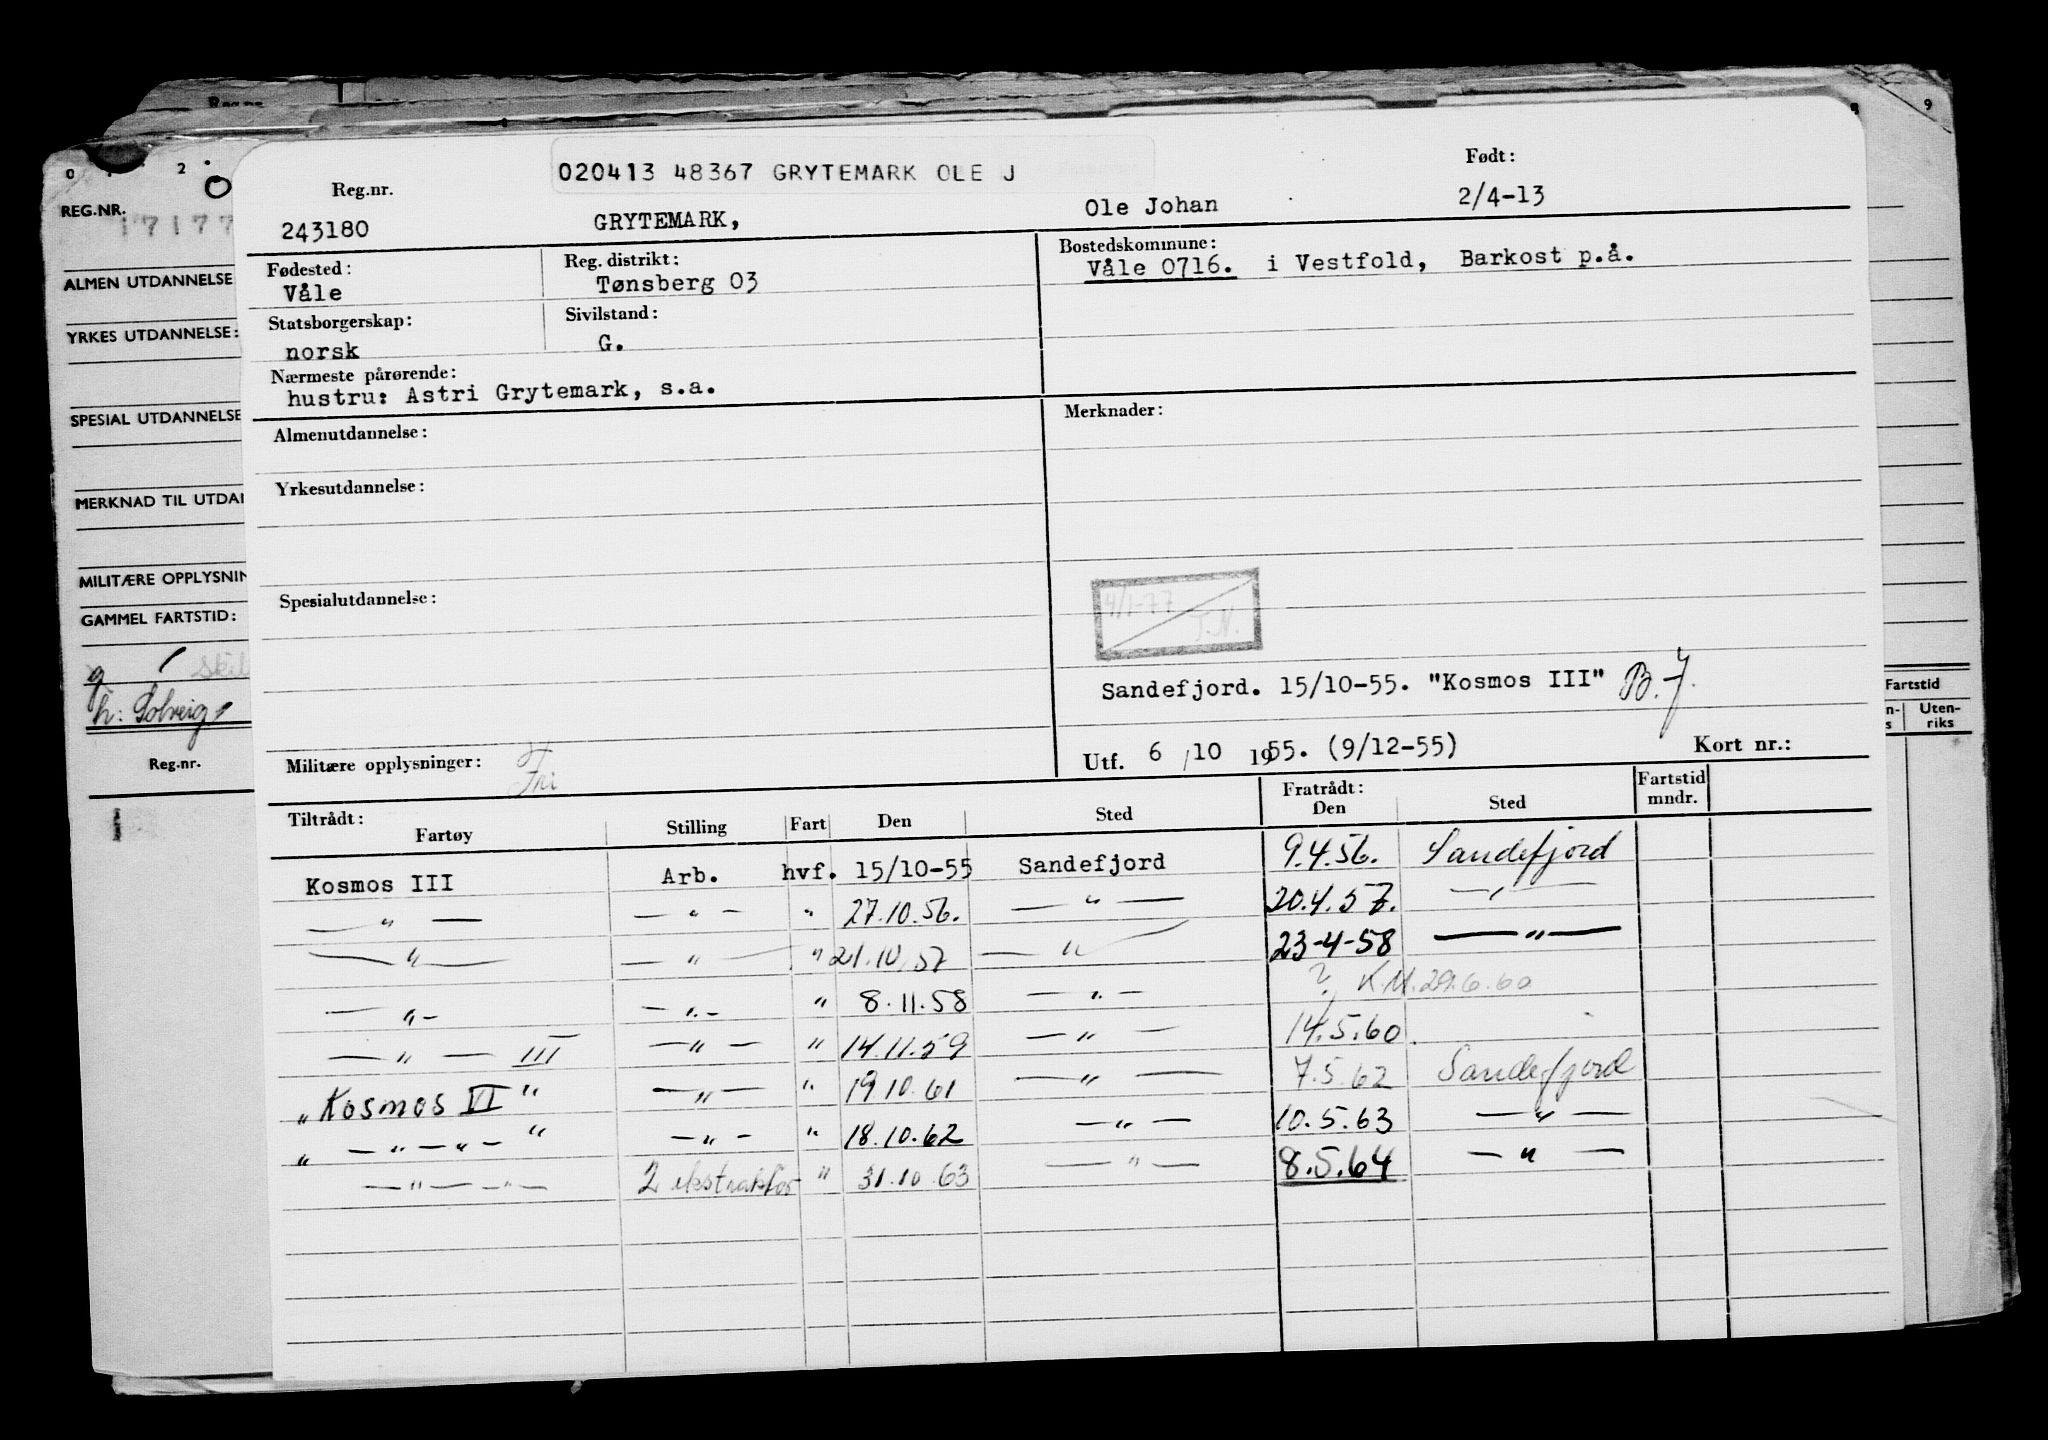 020413 48367 GRYTEMARK OLE J
Reg.nr. Født:
243180 GRYTEMARK, Ole Johan 2/4-13
Fødested: Reg. distrikt: Bostedskommune:
Våle Tønsberg 03 Våle 0716. i Vestfold, Barkost p.å.
Statsborgerskap: Sivilstand:
norsk G.
Nærmeste pårørende:
hustru: Astri Grytemark, s.a.
Almenutdannelse: Merknader:
Yrkesutdannelse:
Spesialutdannelse:
4/1-77
T.N.
Sandefjord. 15/10-55. "Kosmos III" B.J.
Militære opplysninger: Fri
Utf. 6/10 1955. (9/12-55) Kort nr.:
Tiltrådt: Fratrådt: Fartstid
Fartøy Stilling Fart Den Sted Den Sted mndr.
Kosmos III Arb. hvf. 15/10-55 Sandefjord 9.4.56. Sandefjord
— " — — " — " 27.10.56. — " — 20.4.57. — " —
— " — — " — " 21.10.57 — " — 23-4-58 — " —
— " — — " — " 8.11.58 — " — ? K.M. 29.6.60
— " — III — " — " 14.11.59 — " — 14.5.60.
"Kosmos VI" — " — " 19.10.61 — " — 7.5.62 Sandefjord
" — " — " — " — " — " 18.10.62 — " — 10.5.63 — " —
— " — " — 2 ekstraktør " 31.10.63 — " — 8.5.64 — " —
0 2 9
REG.NR.
17177
ALMEN UTDANNELSE
YRKES UTDANNELSE:
SPESIAL UTDANNELSE
MERKNAD TIL UTDAN
MILITÆRE OPPLYSNIN
GAMMEL FARTSTID:
g / Skil
h: Solveig
Reg.nr.
Fartstid
Uten-
riks